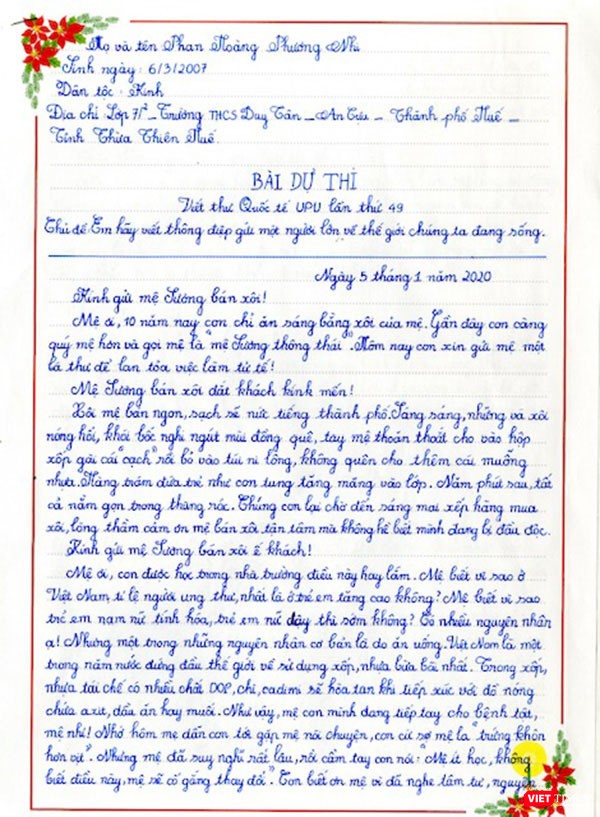 Họ và tên Phan Hoàng Phương Nhi
Sinh ngày: 6/3/2007
Dân tộc: Kinh
Địa chỉ: Lớp 7/² _ Trường THCS Duy Tân _ An Cựu _ Thành phố Huế _
Tỉnh Thừa Thiên Huế.
BÀI DỰ THI
Viết thư Quốc tế UPU lần thứ 49
Chủ đề: Em hãy viết thông điệp gửi một người lớn về thế giới chúng ta đang sống.
Ngày 5 tháng 1 năm 2020
Kính gửi mệ Sương bán xôi!
Mệ ơi, 10 năm nay con chỉ ăn sáng bằng xôi của mệ. Gần đây con càng
quý mệ hơn và gọi mệ là "mệ Sương thông thái". Hôm nay con xin gửi mệ một
lá thư để lan tỏa việc làm tử tế!
Mệ Sương bán xôi đắt khách kính mến!
Xôi mệ bán ngon, sạch sẽ nức tiếng thành phố. Sáng sáng, những vá xôi
nóng hổi, khói bốc nghi ngút mùi đồng quê, tay mệ thoăn thoắt cho vào hộp
xốp gài cái "cạch" rồi bỏ vào túi ni lông, không quên cho thêm cái muỗng
nhựa. Hàng trăm đứa trẻ như con tung tăng mang vào lớp. Năm phút sau, tất
cả nằm gọn trong thùng rác. Chúng con lại chờ đến sáng mai xếp hàng mua
xôi, lòng thầm cảm ơn mệ bán xôi tận tâm mà không hề biết mình đang bị đầu độc.
Kính gửi mệ Sương bán xôi ế khách!
Mệ ơi, con được học trong nhà trường điều này hay lắm. Mệ biết vì sao ở
Việt Nam, tỉ lệ người ung thư, nhất là ở trẻ em tăng cao không? Mệ biết vì sao
trẻ em nam nữ tính hóa, trẻ em nữ dậy thì sớm không? Có nhiều nguyên nhân
ạ! Nhưng một trong những nguyên nhân cơ bản là do ăn uống. Việt Nam là một
trong năm nước đứng đầu thế giới về sử dụng xốp, nhựa bừa bãi nhất. Trong xốp,
nhựa tái chế có nhiều chất DOP, chì, cadimi sẽ hòa tan khi tiếp xúc với đồ nóng
chứa axit, dầu ăn hay muối. Như vậy, mệ con mình đang tiếp tay cho bệnh tật,
mệ nhỉ! Nhớ hôm mẹ dẫn con tới gặp mệ nói chuyện, con cứ sợ mệ la "trứng khôn
hơn vịt". Nhưng mệ đã suy nghĩ rất lâu, rồi cầm tay con nói: "Mệ ít học, không
biết điều này, mệ sẽ cố gắng thay đổi". Con biết ơn mệ vì đã nghe tâm tư, nguyện
VIỆT T